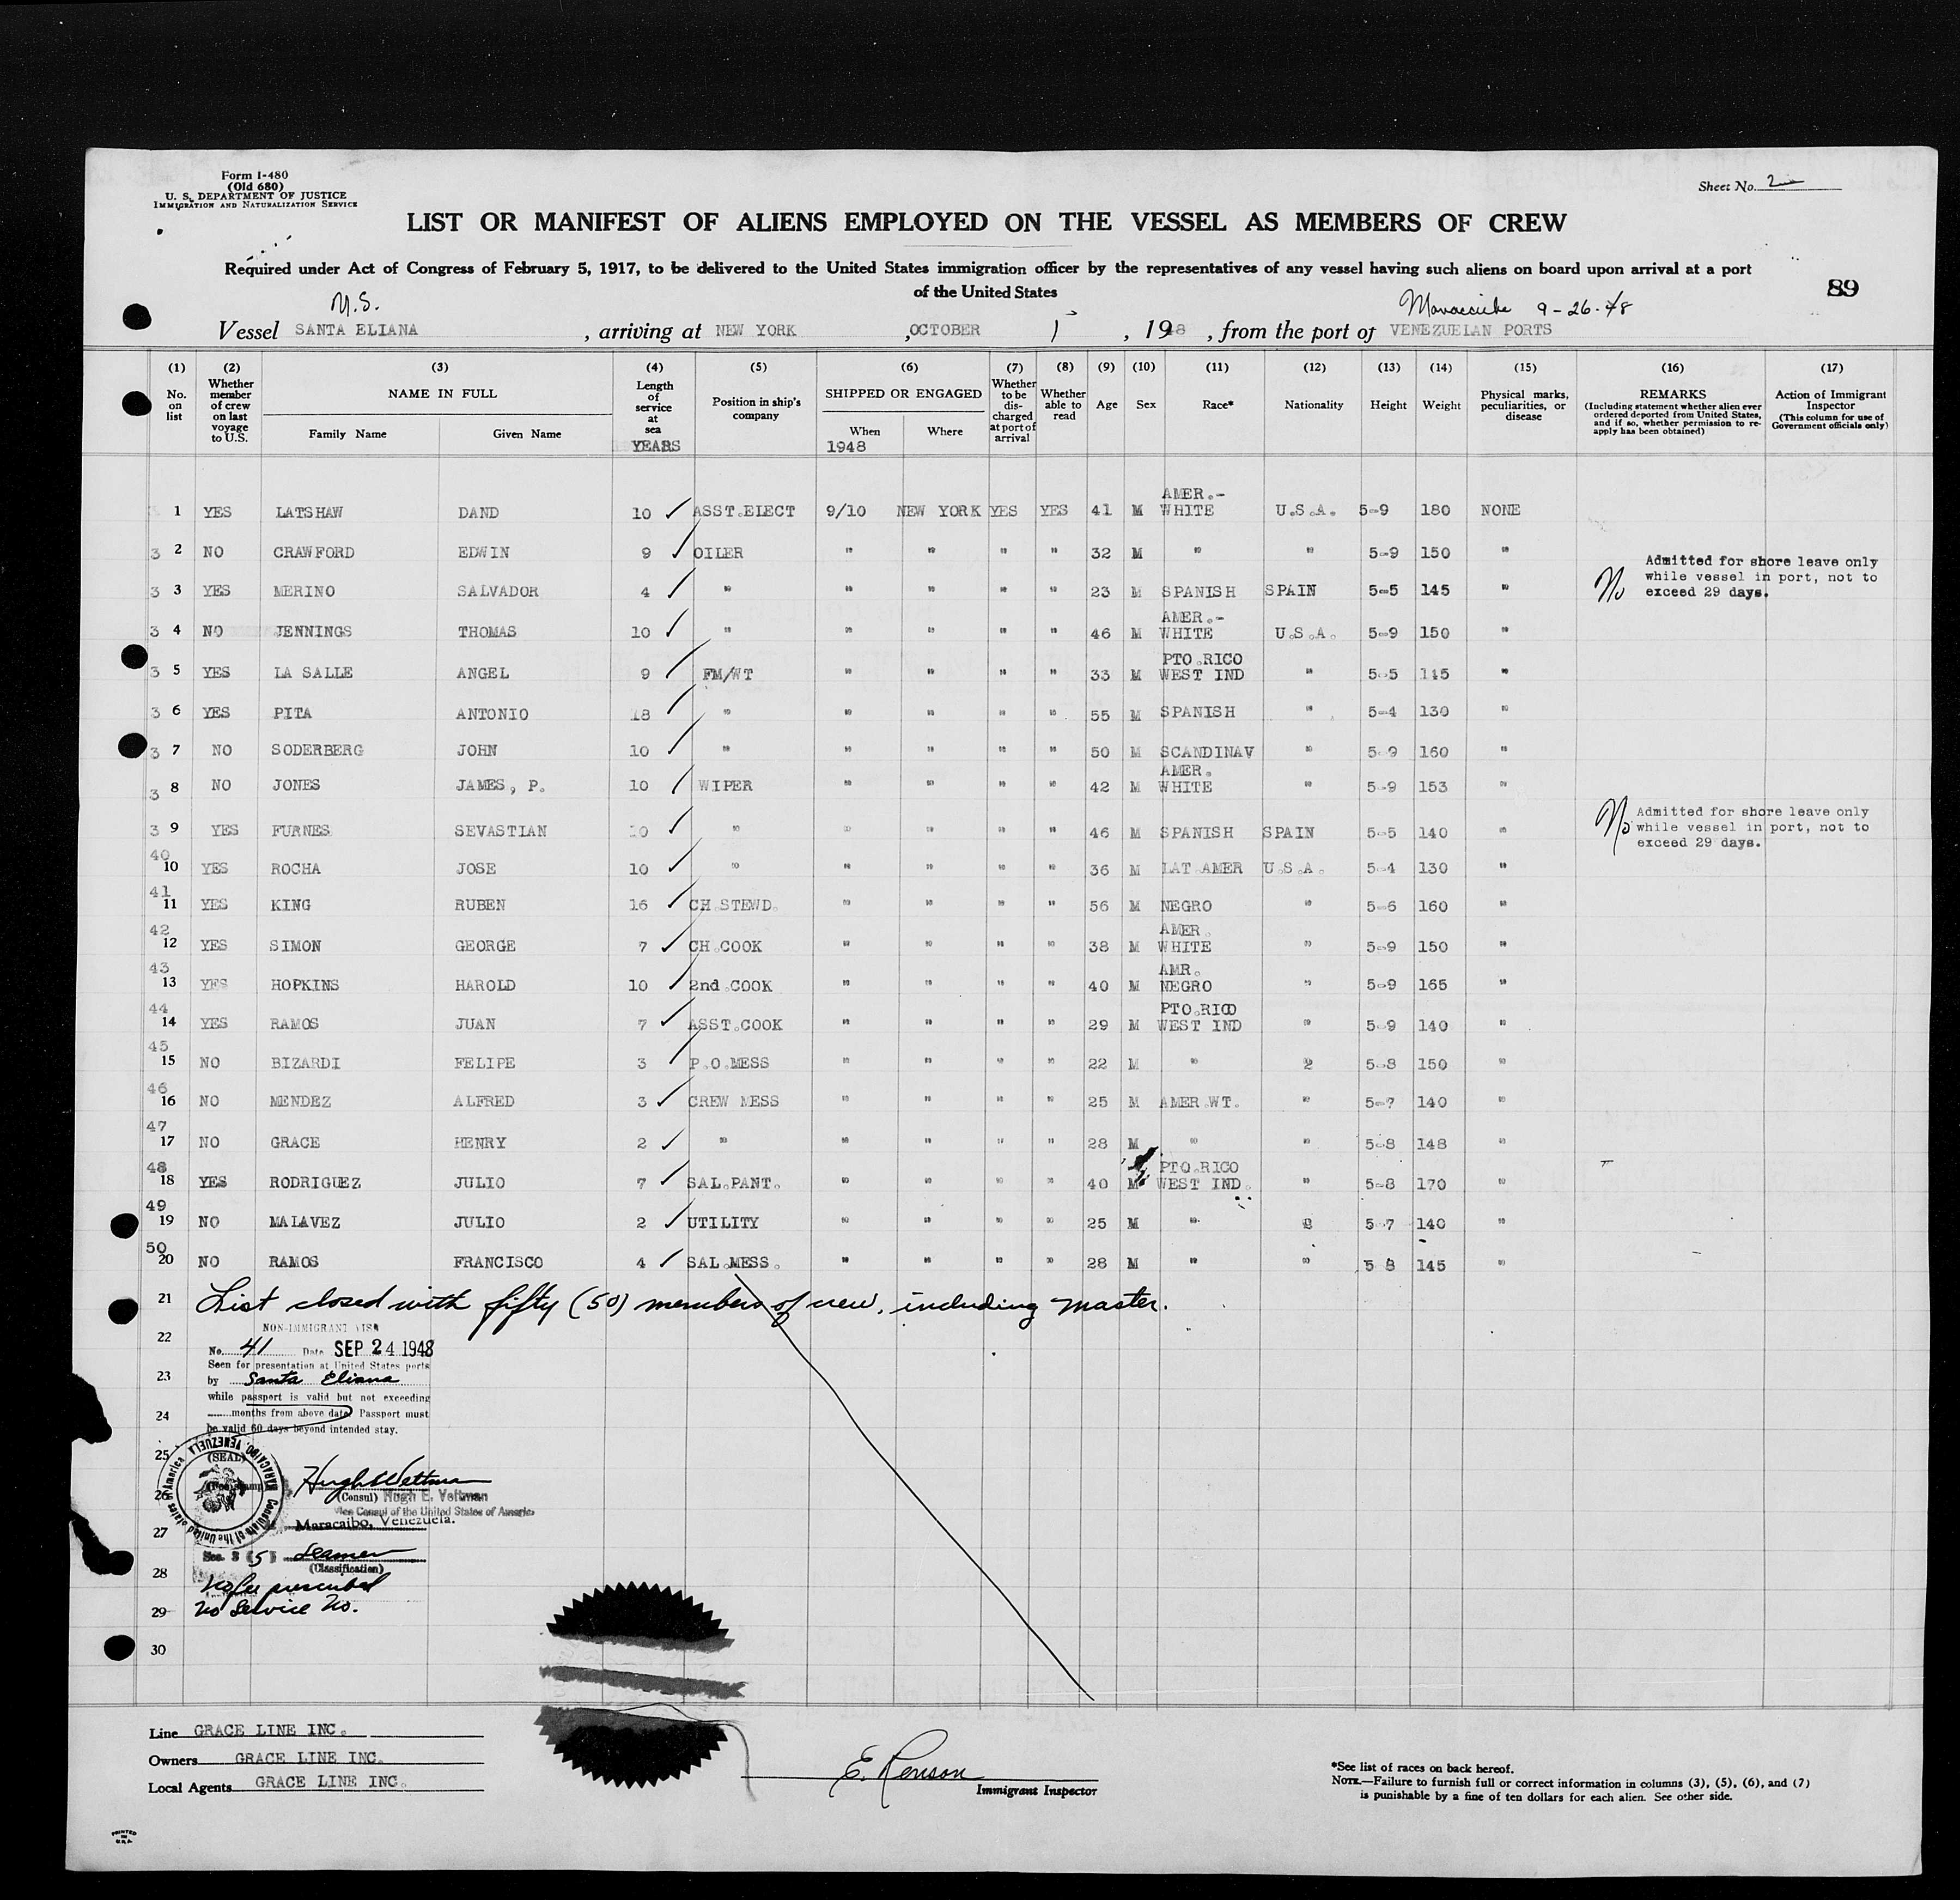 Form I-480
(Old 680)
U. S. DEPARTMENT OF JUSTICE
IMMIGRATION AND NATURALIZATION SERVICE
Sheet No. 2
LIST OR MANIFEST OF ALIENS EMPLOYED ON THE VESSEL AS MEMBERS OF CREW
Required under Act of Congress of February 5, 1917, to be delivered to the United States immigration officer by the representatives of any vessel having such aliens on board upon arrival at a port
of the United States
89
M.S. Maracaibo 9-26-48
Vessel SANTA ELIANA , arriving at NEW YORK , OCTOBER 1 , 1948 , from the port of VENEZUELAN PORTS
(1) (2) (3) (4) (5) (6) (7) (8) (9) (10) (11) (12) (13) (14) (15) (16) (17)
No. on list
Whether member of crew on last voyage to U.S.
NAME IN FULL
Family Name Given Name
Length of service at sea
YEARS
Position in ship's company
SHIPPED OR ENGAGED
When Where
1948
Whether to be discharged at port of arrival
Whether able to read
Age
Sex
Race*
Nationality
Height
Weight
Physical marks, peculiarities, or disease
REMARKS
(Including statement whether alien ever ordered deported from United States, and if so, whether permission to re-apply has been obtained)
Action of Immigrant Inspector
(This column for use of Government officials only)
1 YES LATSHAW DAND 10 ✓ ASST.ELECT 9/10 NEW YORK YES YES 41 M AMER.- WHITE U.S.A. 5-9 180 NONE
3 2 NO CRAWFORD EDWIN 9 ✓ OILER " " " " 32 M " " 5-9 150 "
3 3 YES MERINO SALVADOR 4 ✓ " " " " " 23 M SPANISH SPAIN 5-5 145 " No Admitted for shore leave only while vessel in port, not to exceed 29 days.
3 4 NO JENNINGS THOMAS 10 ✓ " " " " " 46 M AMER.- WHITE U.S.A. 5-9 150 "
3 5 YES LA SALLE ANGEL 9 ✓ FM/WT " " " " 33 M PTO.RICO WEST IND " 5-5 145 "
3 6 YES PITA ANTONIO 18 ✓ " " " " " 55 M SPANISH " 5-4 130 "
3 7 NO SODERBERG JOHN 10 ✓ " " " " " 50 M SCANDINAV " 5-9 160 "
3 8 NO JONES JAMES, P. 10 ✓ WIPER " " " " 42 M AMER. WHITE " 5-9 153 "
3 9 YES FURNES SEVASTIAN 10 ✓ " " " " " 46 M SPANISH SPAIN 5-5 140 " No Admitted for shore leave only while vessel in port, not to exceed 29 days.
40 10 YES ROCHA JOSE 10 ✓ " " " " " 36 M LAT.AMER U.S.A. 5-4 130 "
41 11 YES KING RUBEN 16 ✓ CH.STEWD. " " " " 56 M NEGRO " 5-6 160 "
42 12 YES SIMON GEORGE 7 ✓ CH.COOK " " " " 38 M AMER. WHITE " 5-9 150 "
43 13 YES HOPKINS HAROLD 10 ✓ 2nd.COOK " " " " 40 M AMR. NEGRO " 5-9 165 "
44 14 YES RAMOS JUAN 7 ✓ ASST.COOK " " " " 29 M PTO.RICO WEST IND " 5-9 140 "
45 15 NO BIZARDI FELIPE 3 ✓ P.O.MESS " " " " 22 M " 2 5-8 150 "
46 16 NO MENDEZ ALFRED 3 ✓ CREW MESS " " " " 25 M AMER.WT. " 5-7 140 "
47 17 NO GRACE HENRY 2 ✓ " " " " " 28 M " " 5-8 148 "
48 18 YES RODRIGUEZ JULIO 7 ✓ SAL.PANT. " " " " 40 M PTO.RICO WEST IND. " 5-8 170 "
49 19 NO MALAVEZ JULIO 2 ✓ UTILITY " " " " 25 M " 2 5-7 140 "
50 20 NO RAMOS FRANCISCO 4 ✓ SAL.MESS. " " " " 28 M " " 5-8 145 "
21 List closed with fifty (50) members of crew, including master.
22
23
24
25
26
27
28
29
30
NON-IMMIGRANT VISA
No. 41 Date SEP 24 1948
Seen for presentation at United States ports
by Santa Eliana
while passport is valid but not exceeding
months from above date. Passport must
be valid 60 days beyond intended stay.
(SEAL)
Consulate of the United States of America MARACAIBO, VENEZUELA
Hugh E. Veltman
(Consul) Hugh E. Veltman
Vice Consul of the United States of America
Maracaibo, Venezuela.
Sec. 3 (5) Seamen
(Classification)
No fee prescribed
No Service No.
Line GRACE LINE INC.
Owners GRACE LINE INC.
Local Agents GRACE LINE INC.
E. Renson
Immigrant Inspector
*See list of races on back hereof.
NOTE.—Failure to furnish full or correct information in columns (3), (5), (6), and (7)
is punishable by a fine of ten dollars for each alien. See other side.
PRINTED
IN
U.S.A.